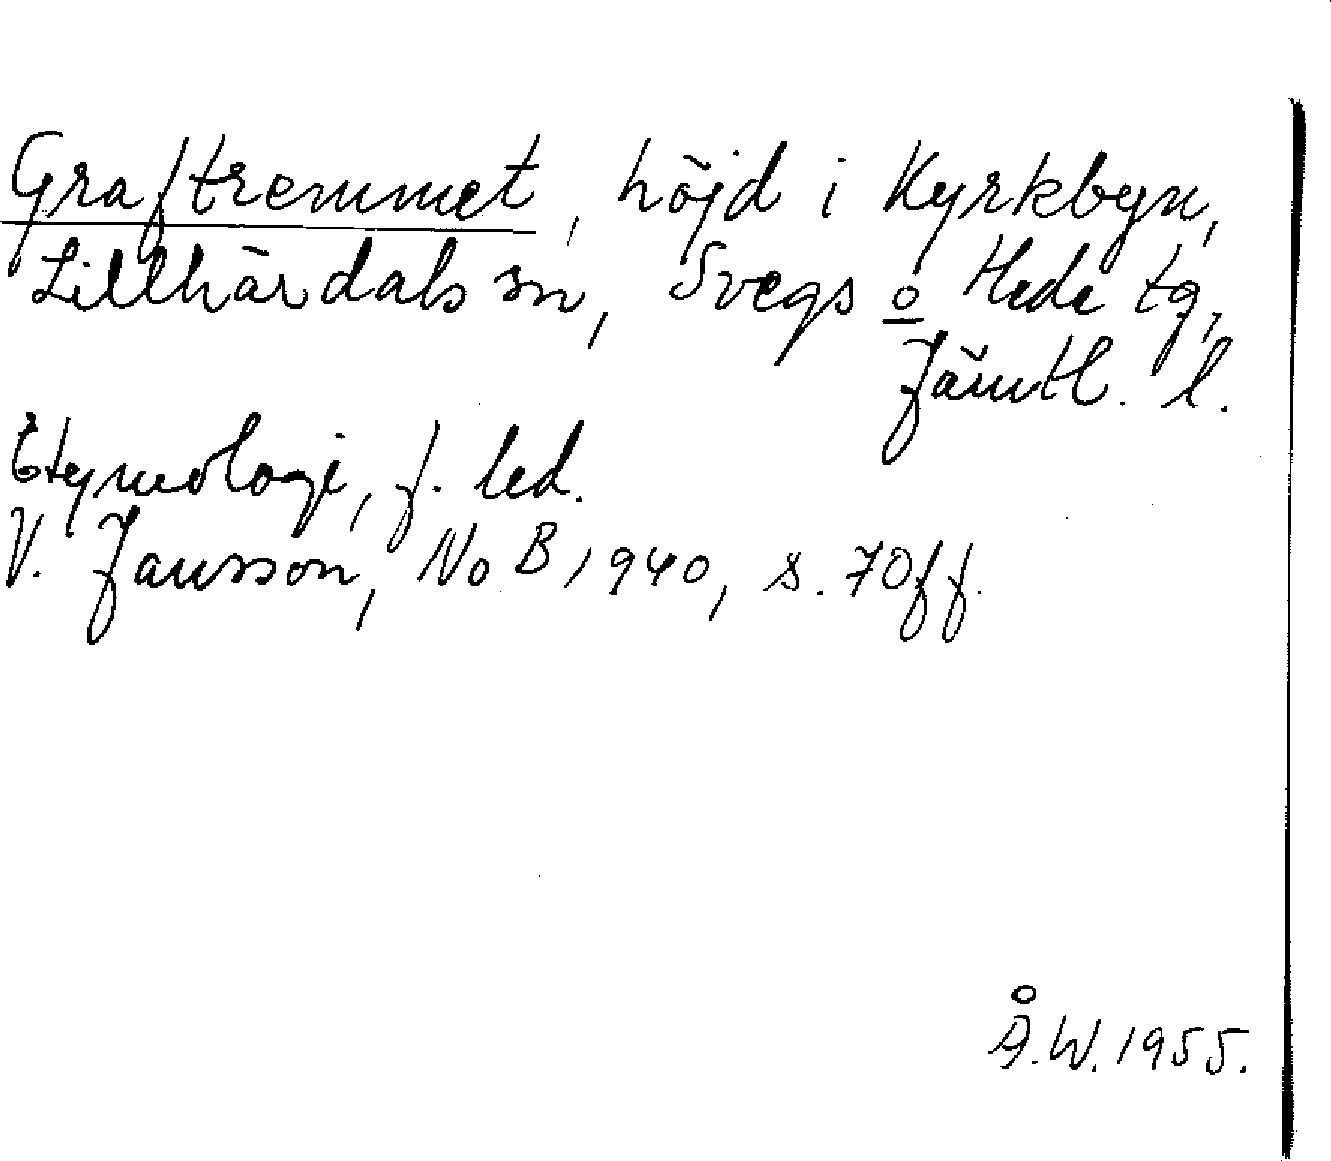 Graftremmet, höjd i Kyrkbyn,
Lillhärdals sn, Svegs o Hede tg,
Jämtl. l.
Etymologi, f. led.
V. Jansson, NoB 1940, s. 70ff.
Å.W. 1955.